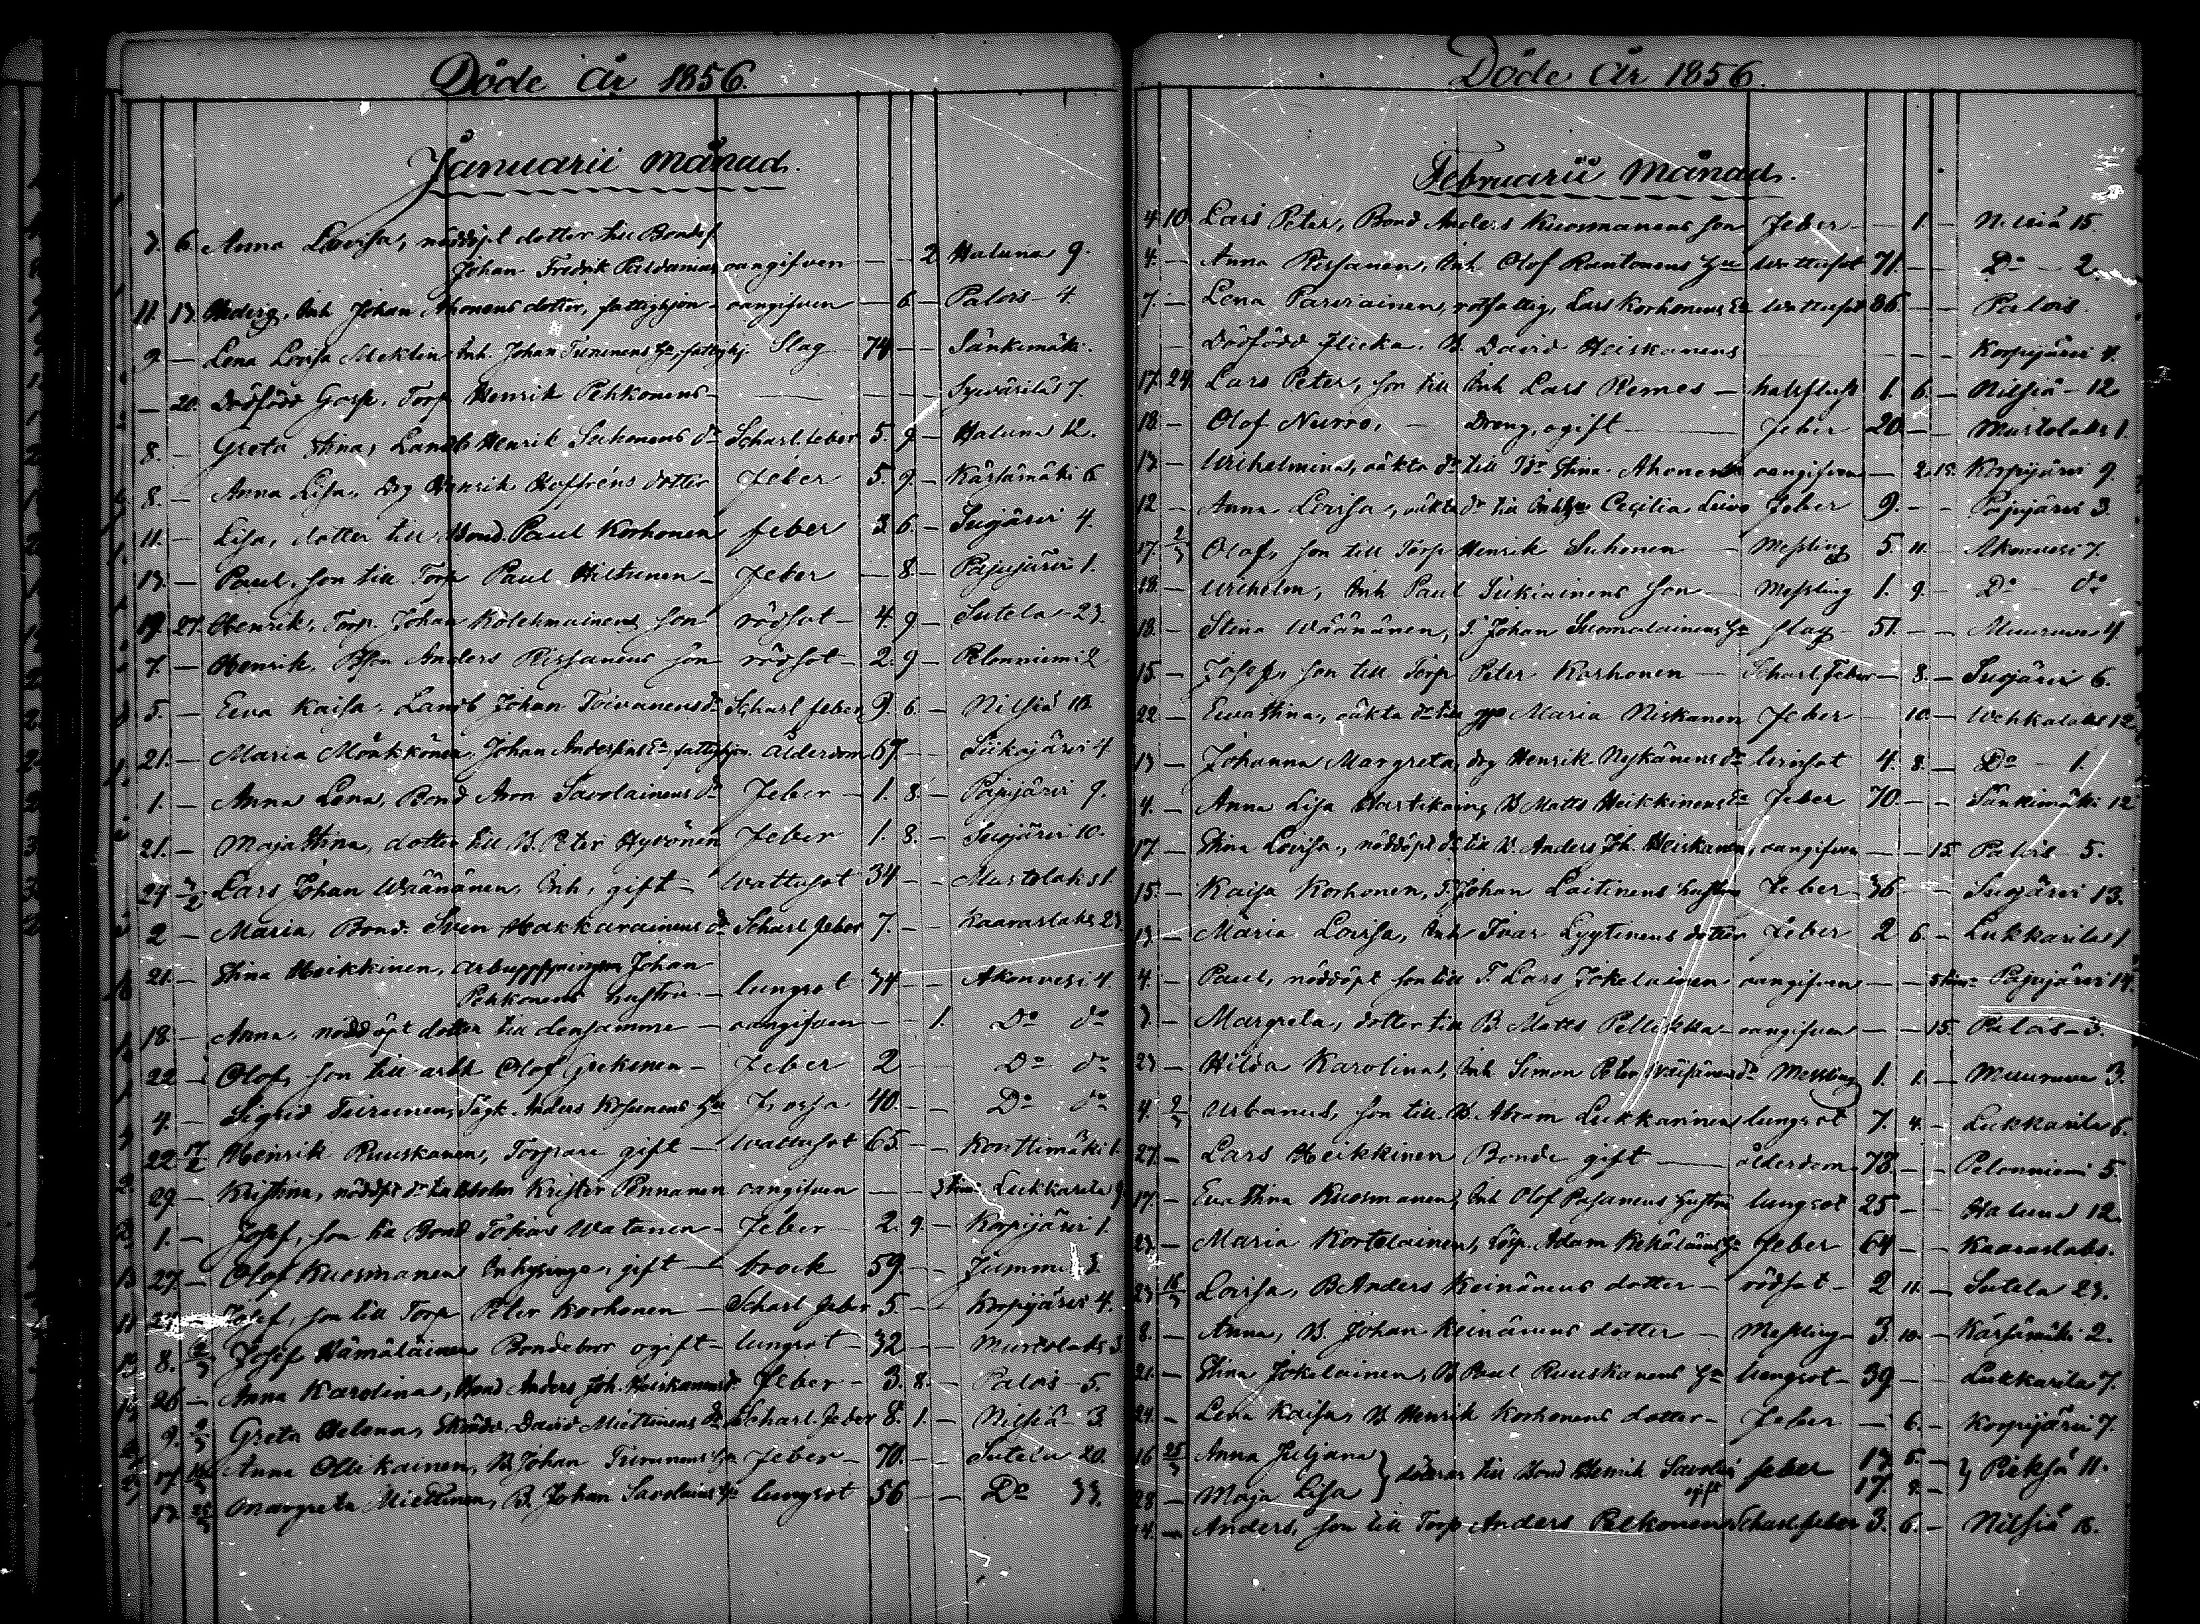 Döde År 1856.
Januarii månad.
7. 6. Anna Lovisa, nöddöpt dotter till Bond.
Johan Fredrik Paldanius oangifven — — 2 Haluna 9.
11. 13. Hedvig, Inh. Johan Ahonens dotter, fattighjon — oangifven — 6. — Palois 4.
9. — Lena Lovisa Meklin Inh. Johan Timonens fattighj. Slag 74 — — Sänkimäki
— 20. Dödfödd Goss. Torp. Henrik Pehkonens — — — — Syvärilä 7.
8. — Greta Stina, Landb. Henrik Suhonens dr Scharl. feber 5. 9. — Haluna 12.
8. — Anna Lisa, drg Henrik Hoffréns dotter Feber 5. 9. — Kärsämäki 6
11. — Lisa, dotter till Bond. Paul Korhonen feber 3 6. — Suojärvi 4.
13. — Paul, son till Torp Paul Hiltunen — Feber — 8. — Pajujärvi 1.
19. 27. Henrik, Torp. Johan Kolehmainens son rödsot — 4. 9 — Sutela 23.
7. — Henrik, Anders Pissanens son rödsot — 2. 9 — Pelonniemi 2
5. — Eva Kaisa, Landb Johan Toivanens dr Scharl feber 9. 6. — Nilsiä 18.
21. — Maria Mönkkönen, Johan fattighjon ålderdom 67. — — Siikajärvi 4
1. — Anna Lena, Bond Aron Savolainens dr Feber — 1. 8. — Pajujärvi 9.
21. — Maja Stina, dotter till B. Peter Hyvönen Feber 1. 8. — Suojärvi 10.
24 Lars Johan Wäänänen, Inh, gift — Wattusot 34 — — Murtolaks 1
2 — Maria, Bond. Sven Hakkarainens dr Scharl feber 7. — — Kaaraslaks 23
21. — Stina Heikkinen, Johan
Pehkonens hustru — lungsot 74 — — Akonvesi 4.
18. — Anna, nöddöpt dotter till densamme — oangifven — — 1. Do do
22 — Olof, son till Olof — Feber 2 — — Do do
4. — Sigrid Anders 40. — — Do do
22 17/2 Henrik Ruuskanen, Torpare gift — Wattusot 65. — — Konttimäki 1.
29. Kristina, nöddöpt dr till Krister Pennanen oangifven — — Lukkarila 9
1. — Josef, son till Bond Tobias Watanen — Feber — 2. 9. — Korpijärvi 1.
27. — Olof Kuosmanen Inhysinge, gift — brock 59. — —
Josef, son till Torp. Peter Korhonen — Scharl feber 5. — — Korpijärvi 4.
8. 2/3 Josef Hämäläinen Bondebror ogift — lungsot — 32 — — Murtolaks 3
26 — Anna Karolina, Bond Anders Joh. Heiskanens d. feber — 3. 8. — Palois 5.
9. 2/3 Greta Helena, David Miettinens dr Scharl. Feber 8. 1. — Nilsiä 3.
17. Anna Ollikainen, B. Johan Timonens Feber — 70. — — Sutela 20.
13. 25/3 Margreta Miettinen, B. Johan Savolainens lungsot 56 — — Do 33.
Döde År 1856.
Februarii Månad.
4. 10. Lars Peter, Bond Anders Kuosmanens son Feber — — 1. — Nilsiä 15.
4. — Anna Pissanen, Inh. Olof Rautonens Wattusot 71. — — Do — 2.
7. — Lena Parviainen, rotfattig, Lars Korhonens Wattusot 86 — — Palois.
Dödfödd flicka, B. David Heiskanens — — — Korpijärvi 4.
17. 24. Lars Peter, son till Inh Lars Remes — halsfluss 1. 6. — Nilsiä — 12
18. — Olof Nurro, — Dreng, ogift — Feber 20. — — Murtolaks 1.
13. — Wilhelmina, oäkta dr till Stina Ahonen oangifven — 2. 15. Korpijärvi 9.
12 — Anna Lovisa, oäkta dr till Cecilia Leivo Feber 9. — — Pajujärvi 3.
17. 2/3 Olof, son till Torp Henrik Suhonen — Messling 5. 11. — Akonvesi 7.
18. — Wilhelm, Inh Paul Tiikiainens son — Messling 1. 9. — Do do
18. — Stina Wäänänen, T. Johan Suomalainens Slag — 51. — — Muuruvesi 4.
15. — Josef, son till Torp Peter Korhonen — Scharl Feber — 8. — Suojärvi 6.
22 — Eva Stina, oäkta dr till Maria Niskanen Feber — 10. — Wehkalaks 12.
13 — Johanna Margreta, drg Henrik Nykänens dr 4. 8. — Do — 1.
4. — Anna Lisa Hartikain, B Matts Heikkinens Feber 70. — — Sänkimäki 12
17 — Stina Lovisa, nöddöpt dr till B. Anders Joh. Heiskanen, oangifven — — 15. Palois 5.
15. — Kaisa Korhonen, T. Johan Laitinens hustru Feber 36 — — Suojärvi 13.
13. — Maria Lovisa, Inh Ivar Lyytinens dotter Feber 2 6. — Lukkarila 1
4. — Paul, nöddöpt son till T. Lars Jokelainen oangifven — — Pajujärvi 14.
7. — Margreta, dotter till B. Matts Pellikka — oangifven — — 15. Palois — 3.
23 — Hilda Karolina, Inh Simon Peter Wäisänens dr Messling 1. 1. — Muuruvesi 3.
4. 9/3 Urbanus, son till B. Abram Lukkarinen lungsot 7. 4. — Lukkarila 6.
27. — Lars Heikkinen Bonde gift — ålderdom 78. — — Pelonniemi 5
17. — Eva Stina Kuosmanen, Inh Olof Pasanens hustru lungsot 25 — — Haluna 12.
23. — Maria Kortelainen, Torp. Adam Feber 64 — — Kaaraslaks.
23 16/3 Lovisa, B Anders Keinänens dotter — rödsot — 2 11. — Sutela 23.
8. — Anna, B. Johan Keinänens dotter — Messling — 3. 10. — Kärsämäki 2.
21. — Stina Jokelainen, B Paul Ruuskanens lungsot — 39 — — Lukkarila 7.
24. — Lena Kaisa, B Henrik Korhonens dotter — Feber — 6. — Korpijärvi 7.
16 25/3 Anna Juljana } döttrar till Bond Henrik feber 13 5. — } Pieksä 11.
28 — Maja Lisa 17. 8. —
14. — Anders, son till Torp Anders Pelkonen Scharl feber 3. 6. — Nilsiä 18.